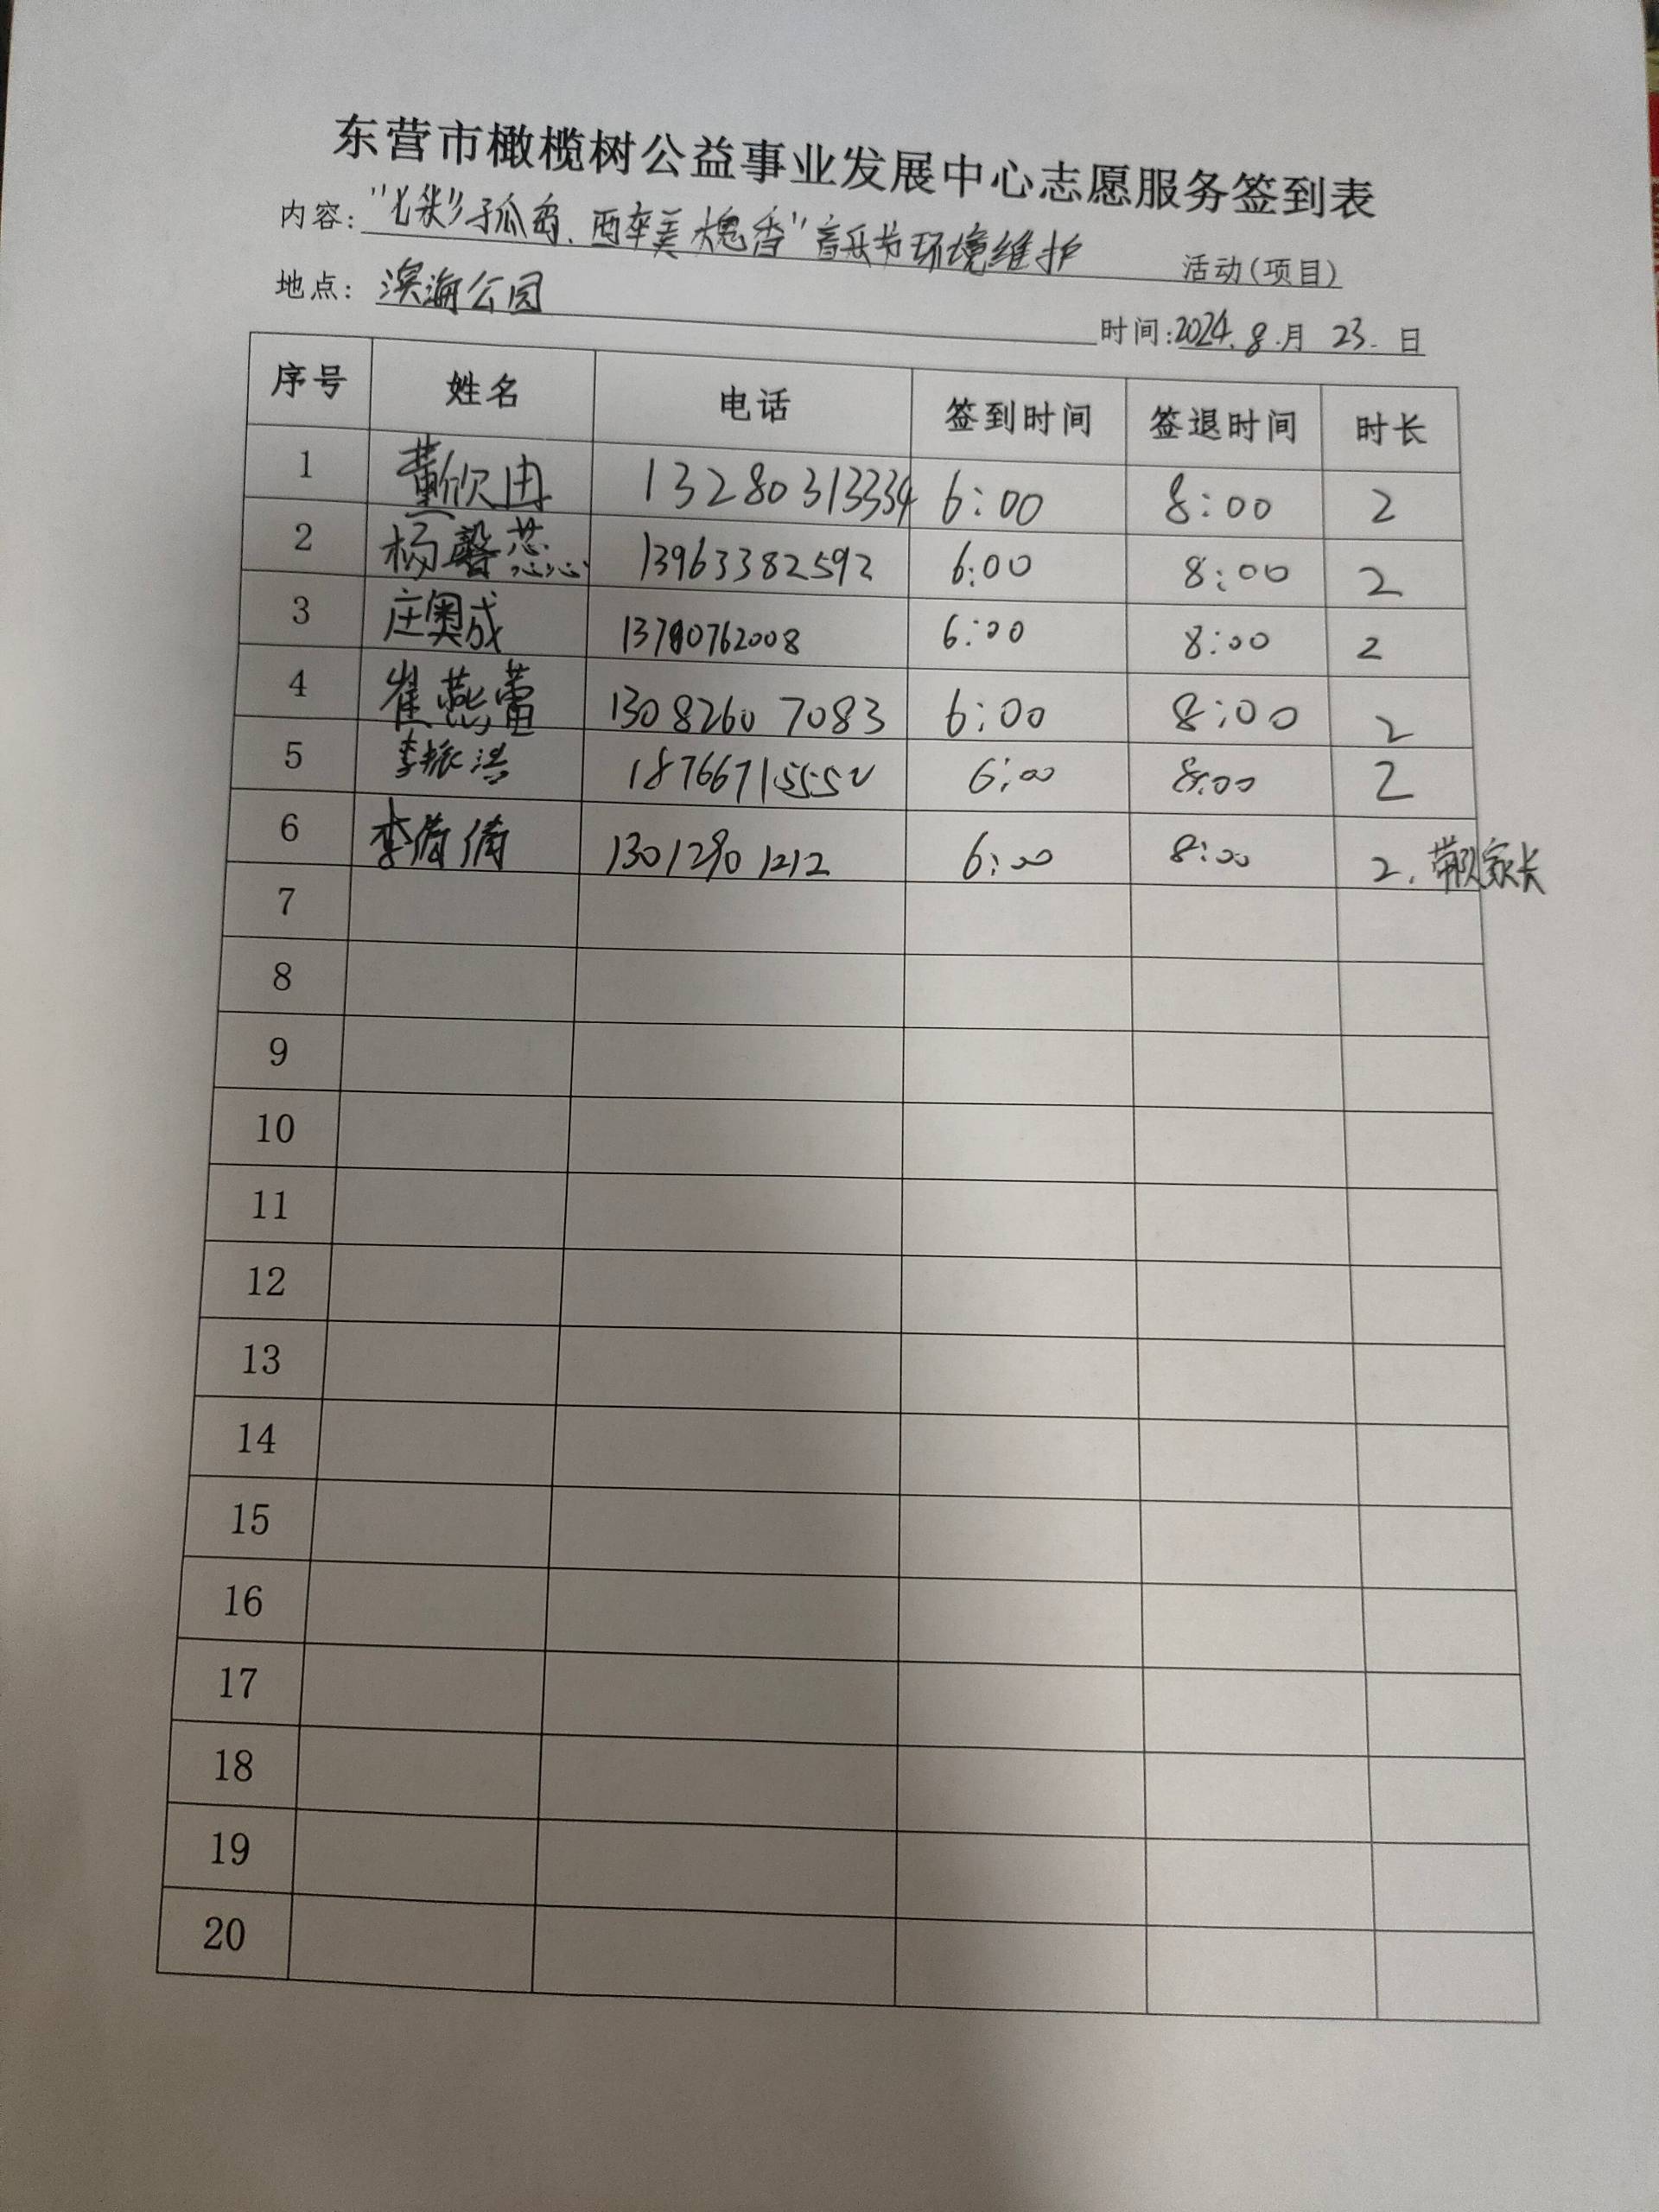 东营市橄榄树公益事业发展中心志愿服务签到表
内容："七彩孤岛、醉美槐香"音乐节环境维护 活动(项目)
地点：滨海公园
时间:2024.8.月 23.日
序号 姓名 电话 签到时间 签退时间 时长
1 董欣冉 13280313334 6:00 8:00 2
2 杨馨蕊 13963382592 6:00 8:00 2
3 庄奥成 6:00 8:00 2
4 崔燕蕾 13082607083 6:00 8:00 2
5 李振浩 6:00 8:00 2
6 李倩倩 13012901212 6:00 8:00 2. 带队家长
7
8
9
10
11
12
13
14
15
16
17
18
19
20